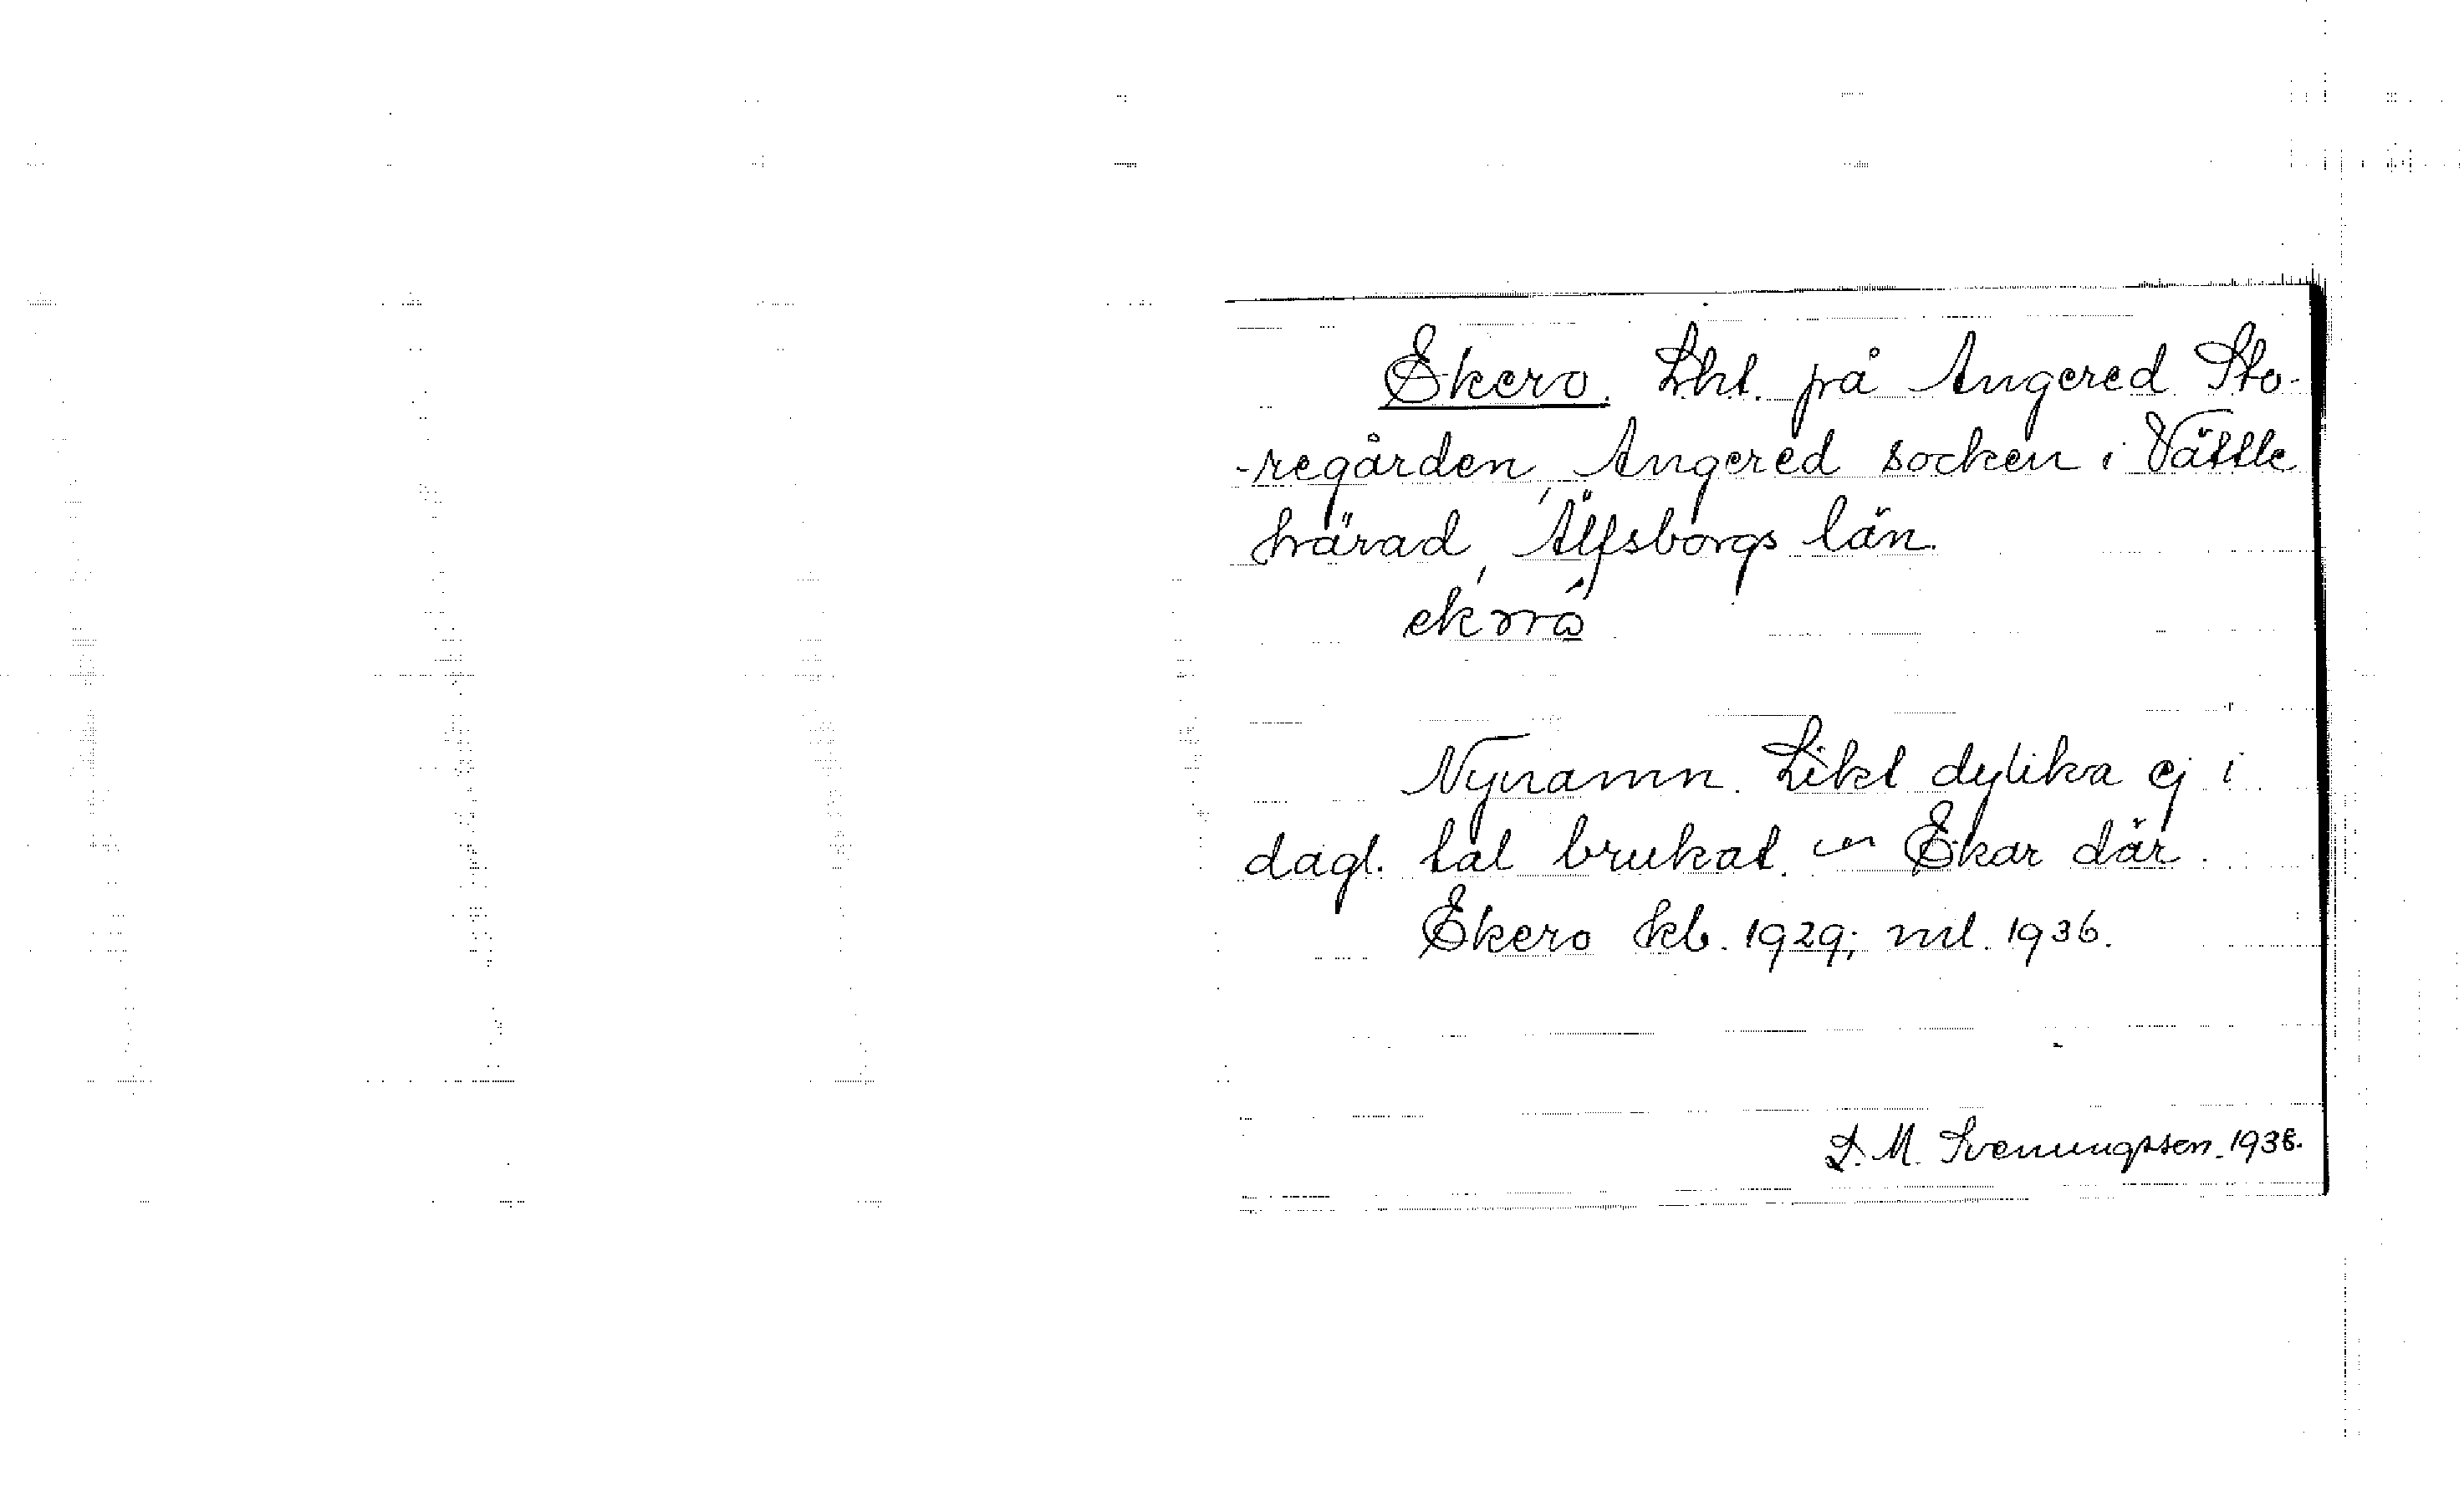 Ekero. Lht. på Angered Sto-
-regården, Angered socken i Vättle
härad, Älfsborgs län.
Nynamn. Likt dylika ej i
dagl. tal brukat. Ekar där.
Ekero kb. 1929; ml. 1936.
D. M. Svenungsson. 1938.